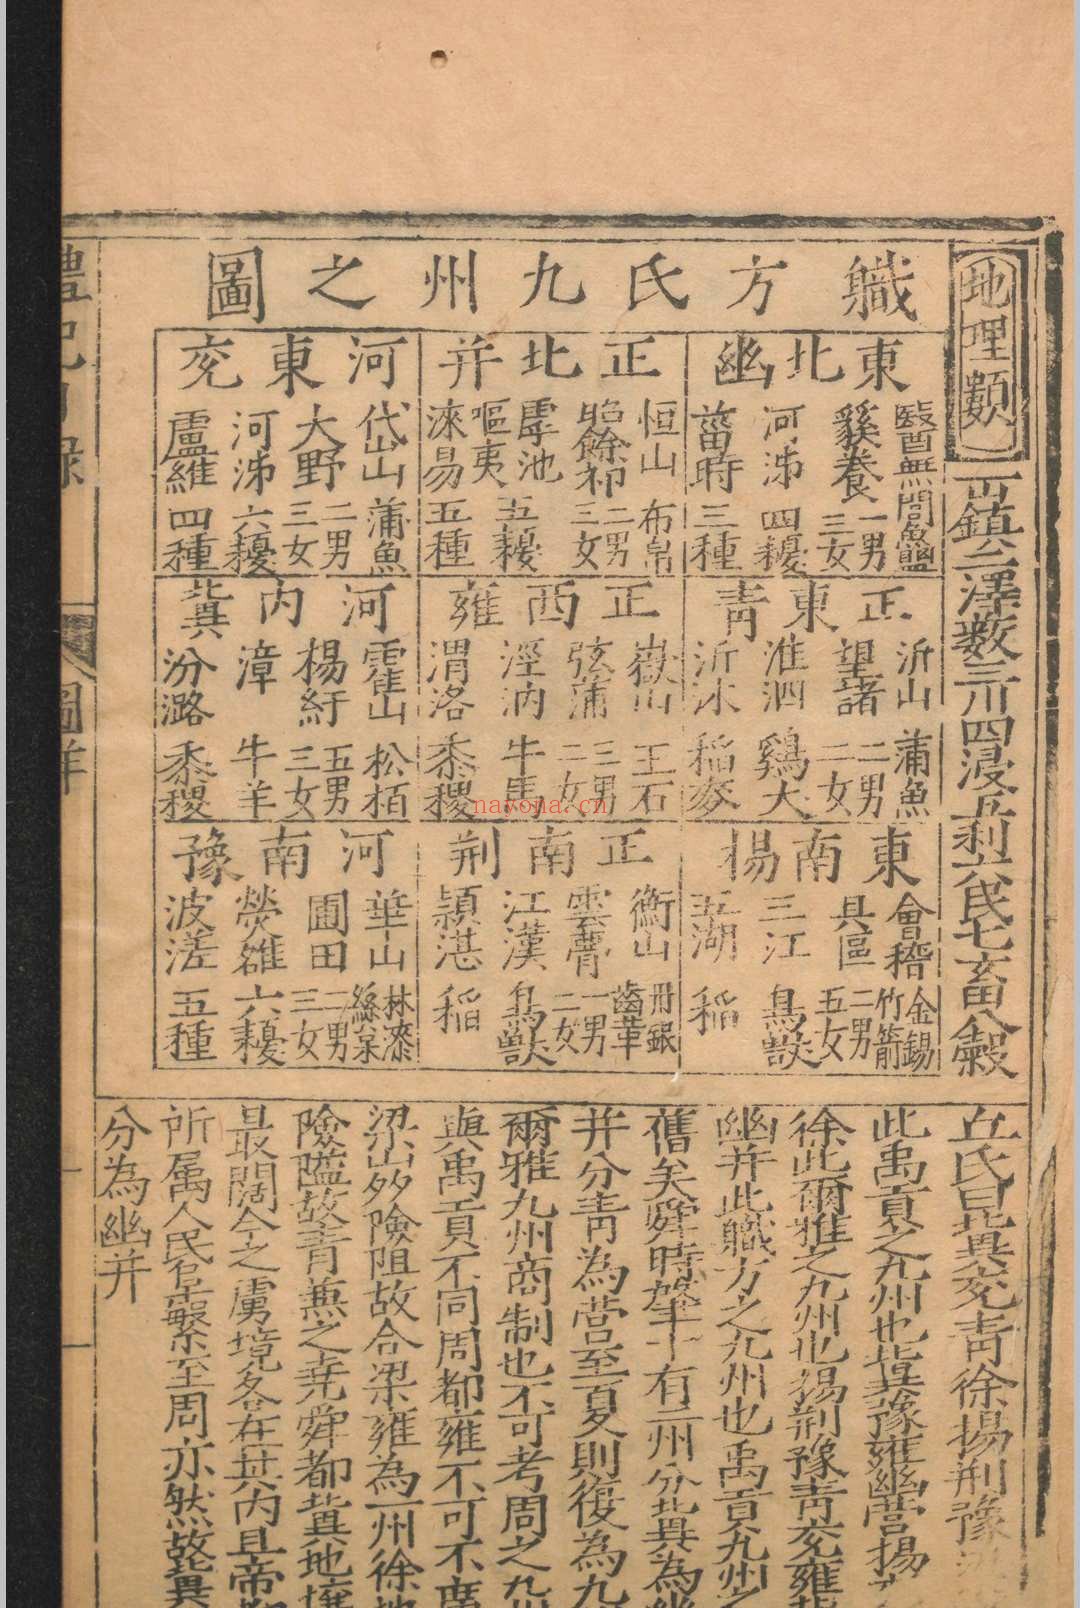 地理類
一山鎮二澤藪三川四浸五利六民七畜八穀
職方氏九州之圖
東北幽
醫無閭魚鹽
貕養一男三女
河泲四擾
菑時三種
正北并
恒山布帛
昭餘祁二男三女
虖池五擾
嘔夷
淶易五種
河東兗
岱山蒲魚
大野二男三女
河泲六擾
盧維四種
正東青
沂山蒲魚
望諸二男二女
淮泗鷄犬
沂沭稻麥
正西雍
嶽山玉石
弦蒲三男二女
涇汭牛馬
渭洛黍稷
河內冀
霍山松栢
楊紆五男三女
漳牛羊
汾潞黍稷
東南揚
會稽金錫竹箭
具區二男五女
三江鳥獸
五湖稻
正南荆
衡山丹銀齒革
雲瞢一男二女
江漢鳥獸
潁湛稻
河南豫
華山林漆絲枲
圃田二男三女
熒雒六擾
波溠五種
丘氏曰冀兗青徐揚荆豫
此禹貢之九州也冀豫雍幽營揚
徐此爾雅之九州也揚荆豫青兗雍冀
幽并此職方之九州也禹貢九州之
舊矣舜時肇十有二州分冀為幽
并分青為營至夏則復為九
爾雅九州商制也不可考周之九州
與禹貢不同周都雍不可不廣
梁山多險阻故合梁雍為一州徐地
險隘故青兼之堯舜都冀地壤
最闊今之虜境多在其內且帝都
所属人民至繁至周亦然故冀
分為幽并
禮記目錄
圖
nayona.cn